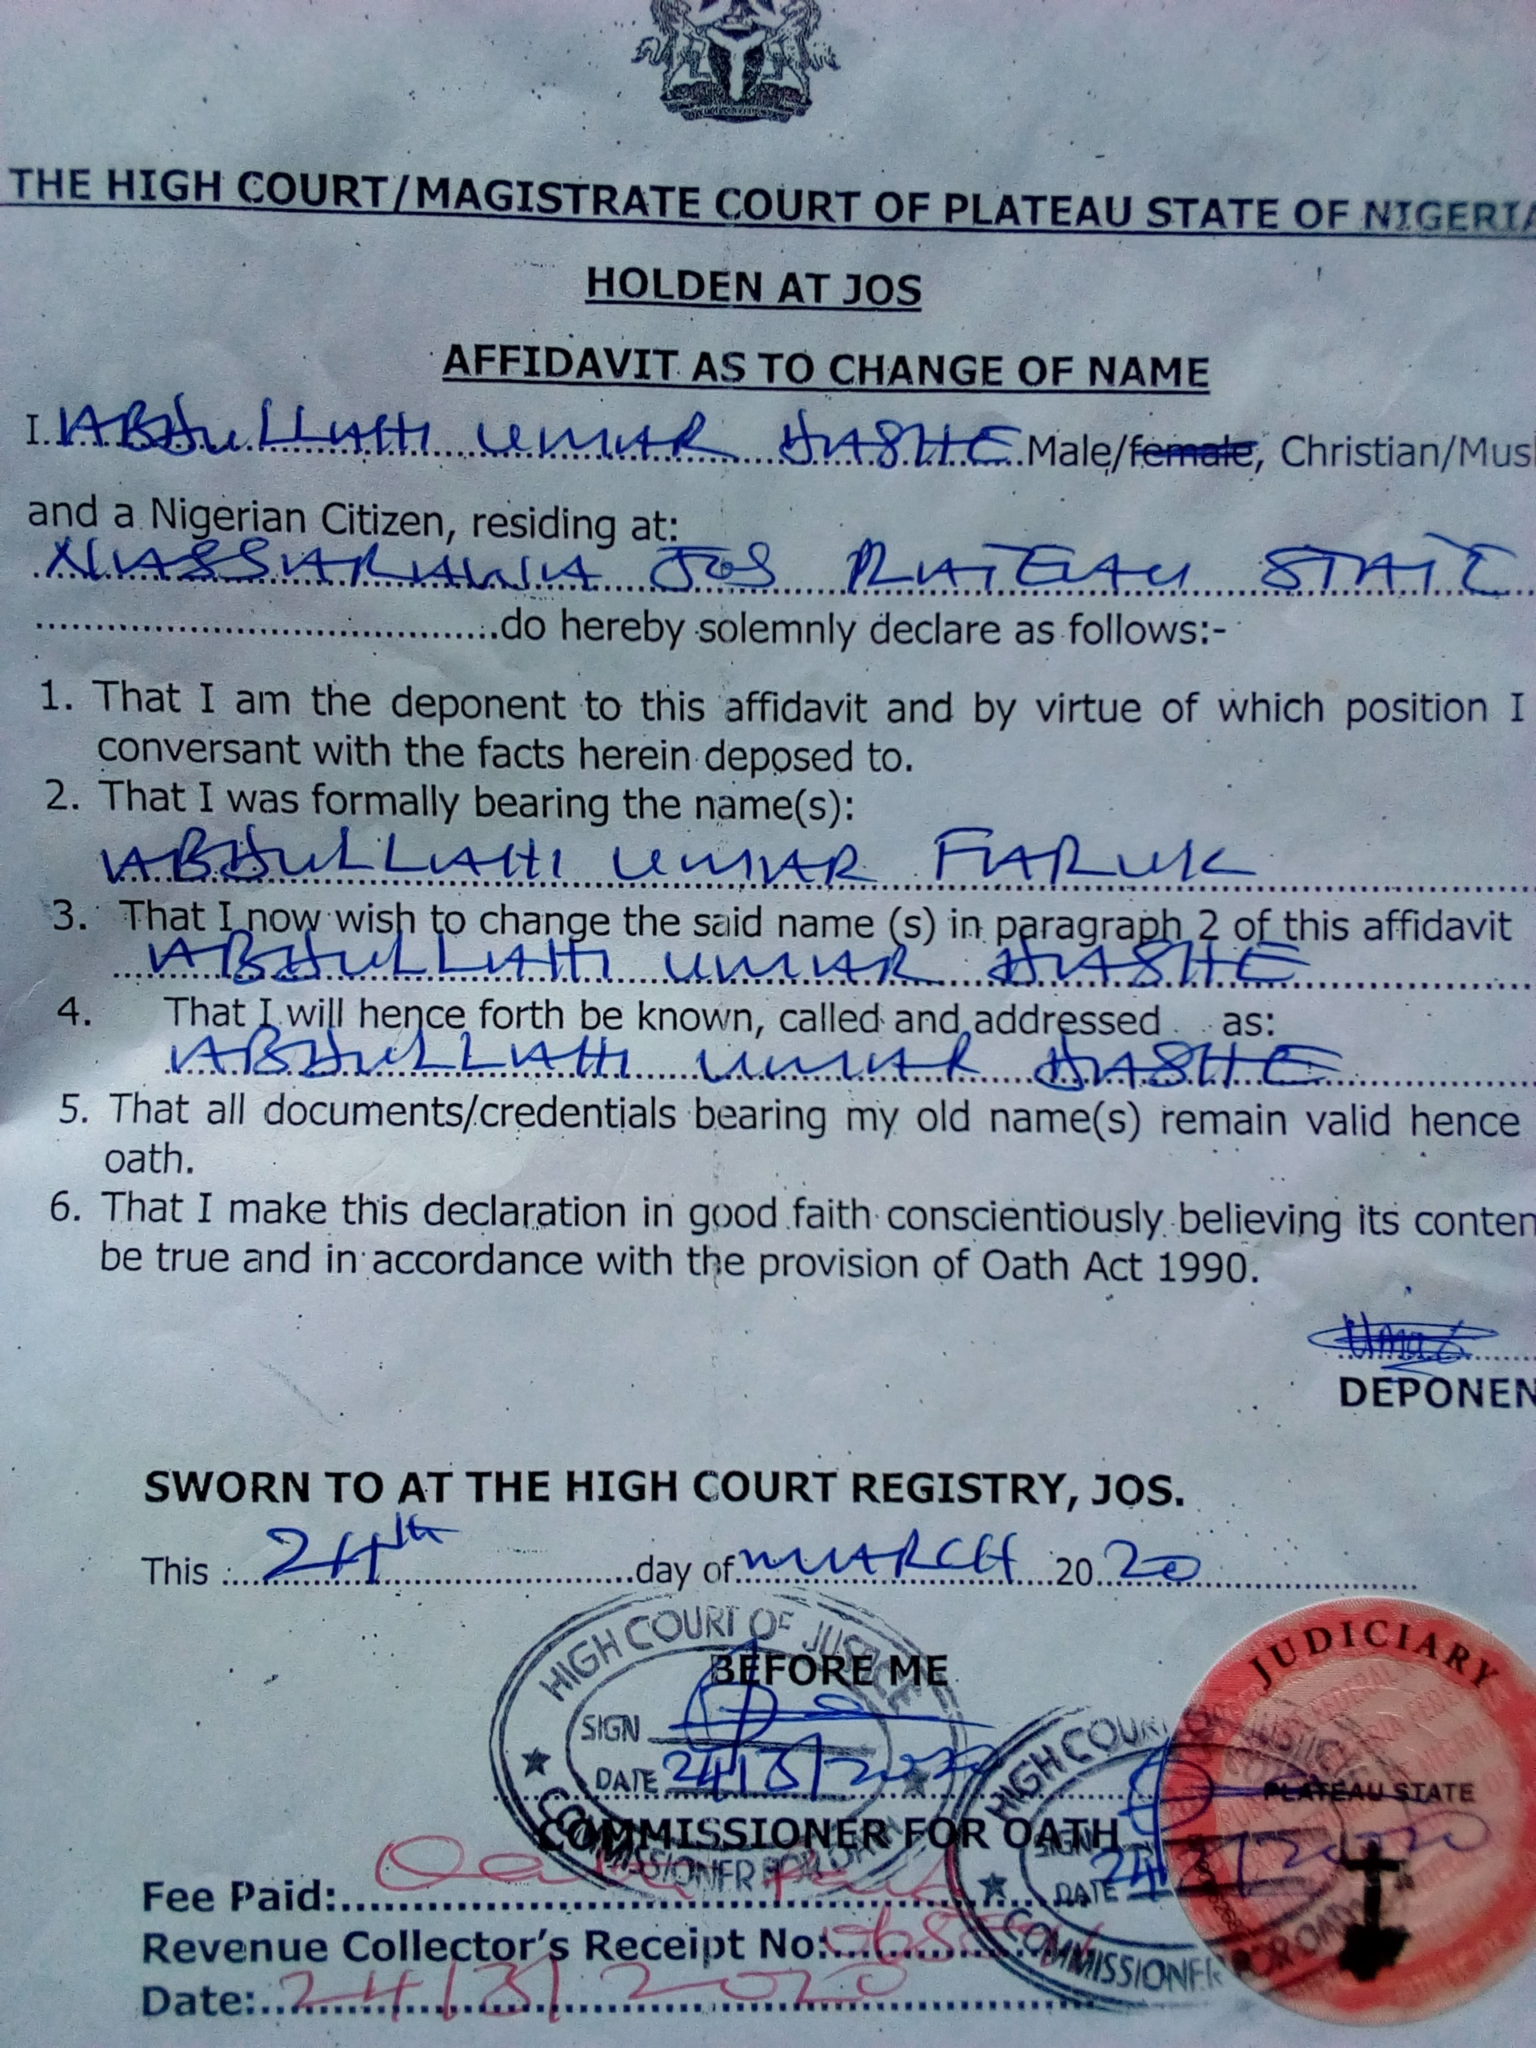 THE HIGH COURT/MAGISTRATE COURT OF PLATEAU STATE OF NIGERIA
HOLDEN AT JOS
AFFIDAVIT AS TO CHANGE OF NAME
I. ABDULLAHI UMAR DASHE Male/female, Christian/Musl
and a Nigerian Citizen, residing at:
NASSARAWA JOS PLATEAU STATE
do hereby solemnly declare as follows:-
1. That I am the deponent to this affidavit and by virtue of which position I
conversant with the facts herein deposed to.
2. That I was formally bearing the name(s):
ABDULLAHI UMAR FARUK
3. That I now wish to change the said name (s) in paragraph 2 of this affidavit
ABDULLAHI UMAR DASHE
4. That I will hence forth be known, called and addressed as:
ABDULLAHI UMAR DASHE
5. That all documents/credentials bearing my old name(s) remain valid hence
oath.
6. That I make this declaration in good faith conscientiously believing its conten
be true and in accordance with the provision of Oath Act 1990.
DEPONEN
SWORN TO AT THE HIGH COURT REGISTRY, JOS.
This 24th day of MARCH 2020
HIGH COURT OF JUSTICE
BEFORE ME
SIGN
DATE 24/3/2020
COMMISSIONER FOR OATH
JUDICIARY
PLATEAU STATE
HIGH COURT
SIGN
DATE 24/3/2020
COMMISSIONER FOR OATH
COMMISSIONER FOR OATH
Fee Paid:
Revenue Collector's Receipt No:
Date: 24/3/2020